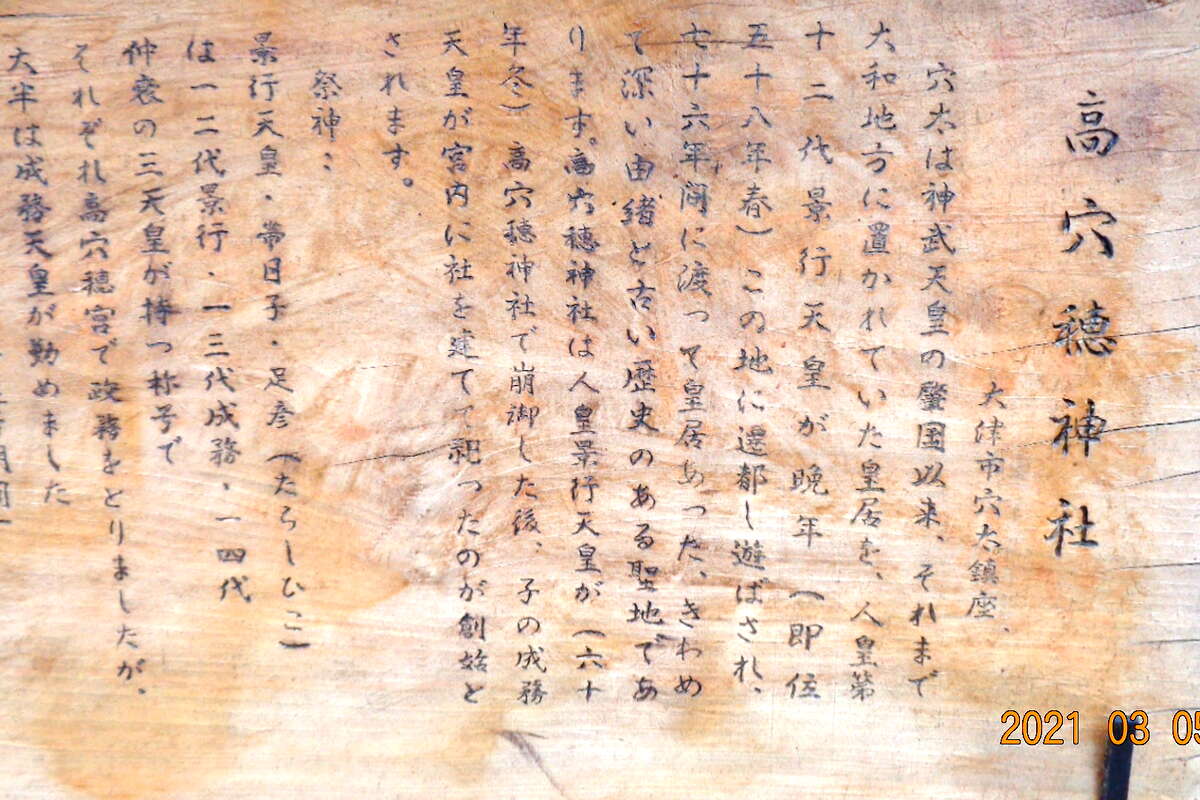 高穴穂神社
大津市穴太鎮座、
穴太は神武天皇の肇国以来、それまで
大和地方に置かれていた皇居を、人皇第
十二代景行天皇が晩年(即位
五十八年春)この地に遷都し遊ばされ、
七十六年間に渡って皇居あった、きわめ
て深い由緒と古い歴史のある聖地であ
ります。高穴穂神社は人皇景行天皇が(六十
年冬)高穴穂神社で崩御した後、子の成務
天皇が宮内に社を建てて祀ったのが創始と
されます。
祭神:
景行天皇・帯日子・足彦(たらしひこ)
は一二代景行・一三代成務・一四代
仲哀の三天皇が持つ称号で
それぞれ高穴穂宮で政務をとりましたが、
大半は成務天皇が勤めました
2021 03 05